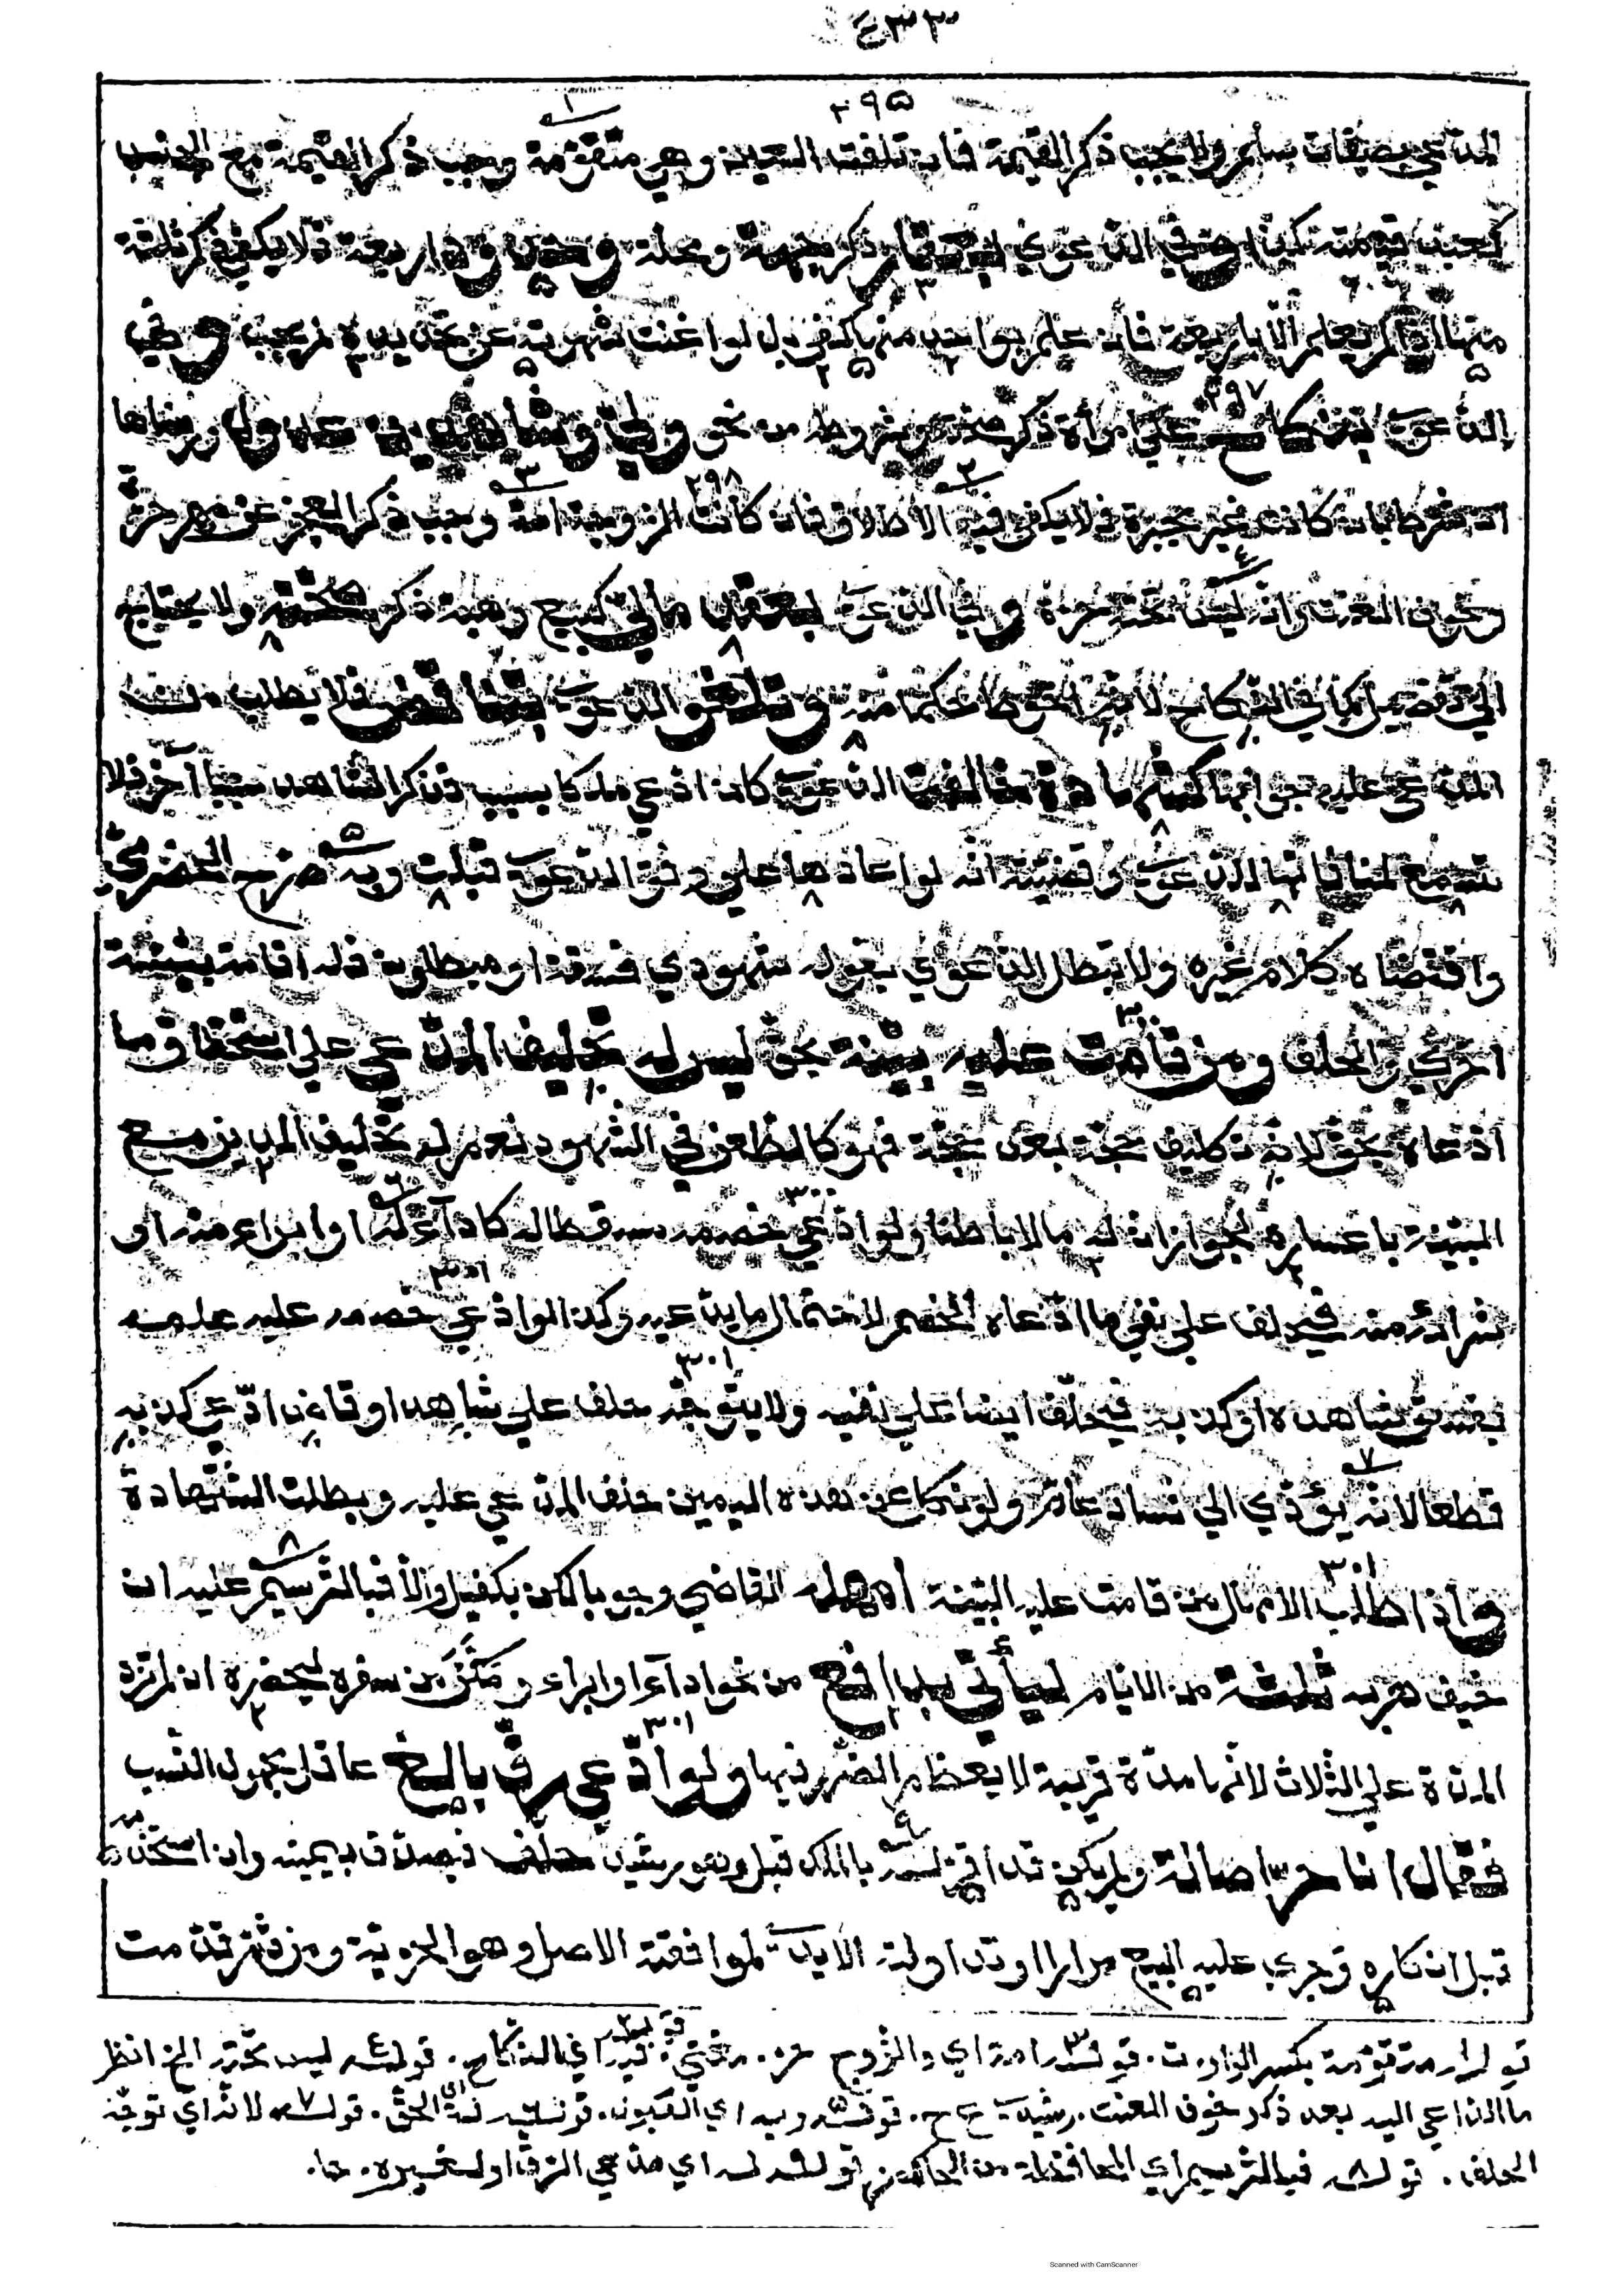 ٤٣٣
٢٩٥
المدعي بصفات سلم ولا يجب ذكر القيمة فان تلفت العين وهي متقومة وجب ذكر القيمة مع الجنس
كعبد قيمته كذا وفي الدعوى بعقار ذكر جهة ومحلة وحدود اربعة فلا يكفي ذكر ثلثة
منها اذا لم يعلم الا باربعة فان علم بواحد منها كفى بل لو اغنت شهرته عن تحديده لم يجب وفي
الدعوى بنكاح على امرأة ذكر صحته وشروطه من نحو ولي وشاهدين عدول ورضاها
ان شرط بان كانت غير مجبرة فلا يكفي فيه الاطلاق فان كانت الزوجة امة وجب ذكر العجز عن مهر حرة
وخوف العنت وانه ليس تحته حرة وفي الدعوى بعقد مالي كبيع وهبة ذكر صحته ولا يحتاج
الى تفصيل كما في النكاح لانه احوط حكما منه وتلغو الدعوى بتناقض فلا يطلب من
المدعى عليه جوابها كشهادة خالفت الدعوى كان ادعى ملكا بسبب فذكر الشاهد سببا آخر فلا
تسمع لمنافاتها الدعوى وقضيته انه لو اعادها على وفق الدعوى قبلت وبه صرح الحضرمي
واقتضاه كلام غيره ولا تبطل الدعوى بقوله شهودي فسقة او مبطلون فله اقامة بينة
اخرى والحلف ومن قامت عليه بينة بحق ليس له تحليف المدعي على استحقاق ما
ادعاه بحق لانه تكليف حجة بعد حجة فهو كالطعن في الشهود نعم له تحليف المدين مع
البينة باعساره لجواز ان له مالا باطنا ولو ادعى خصمه مسقطا له كاداء له او ابراء منه او
شرائه منه فيحلف على نفي ما ادعاه الخصم لاحتمال ما يدعيه وكذا لو ادعى خصمه عليه علمه
بفسق شاهده او كذبه فيحلف ايضا على نفيه ولا يتوجه حلف على شاهد او قاض ادعى كذبه
قطعا لانه يؤدي الى فساد عام ولو نكل عن هذه اليمين حلف المدعى عليه وبطلت الشهادة
واذا طلب الامهال من قامت عليه البينة امهله القاضي وجوبا لكن بكفيل والا فبالترسيم عليه ان
خيف هربه ثلثة من الايام ليأتي بدافع من نحو اداء او ابراء ومكن من سفره ليحضره ان لم تزد
المدة على الثلاث لانها مدة قريبة لا يعظم الضرر فيها ولو ادعى رق بالغ عاقل مجهول النسب
فقال انا حر اصالة ولم يكن قد اقر له بالملك قبل وهو رشيد حلف فيصدق بيمينه وان استخدمه
قبل انكاره وجرى عليه البيع مرارا او تداولته الايدي لموافقته الاصل وهو الحرية ومن ثم قدمت
قوله متقومة بكسر الواو ت. قوله امة اي والزوج حر. قوله ليس تحته الخ انظر
ما الداعي اليه بعد ذكر خوف العنت. رشيدي ح. قوله وبه اي القبول. قوله له اي الحق. قوله لانه اي توجه
الحلف. قوله فبالترسيم اي المحافظة من الحاكم. قوله له اي مدعي الرق او لغيره.
Scanned with CamScanner